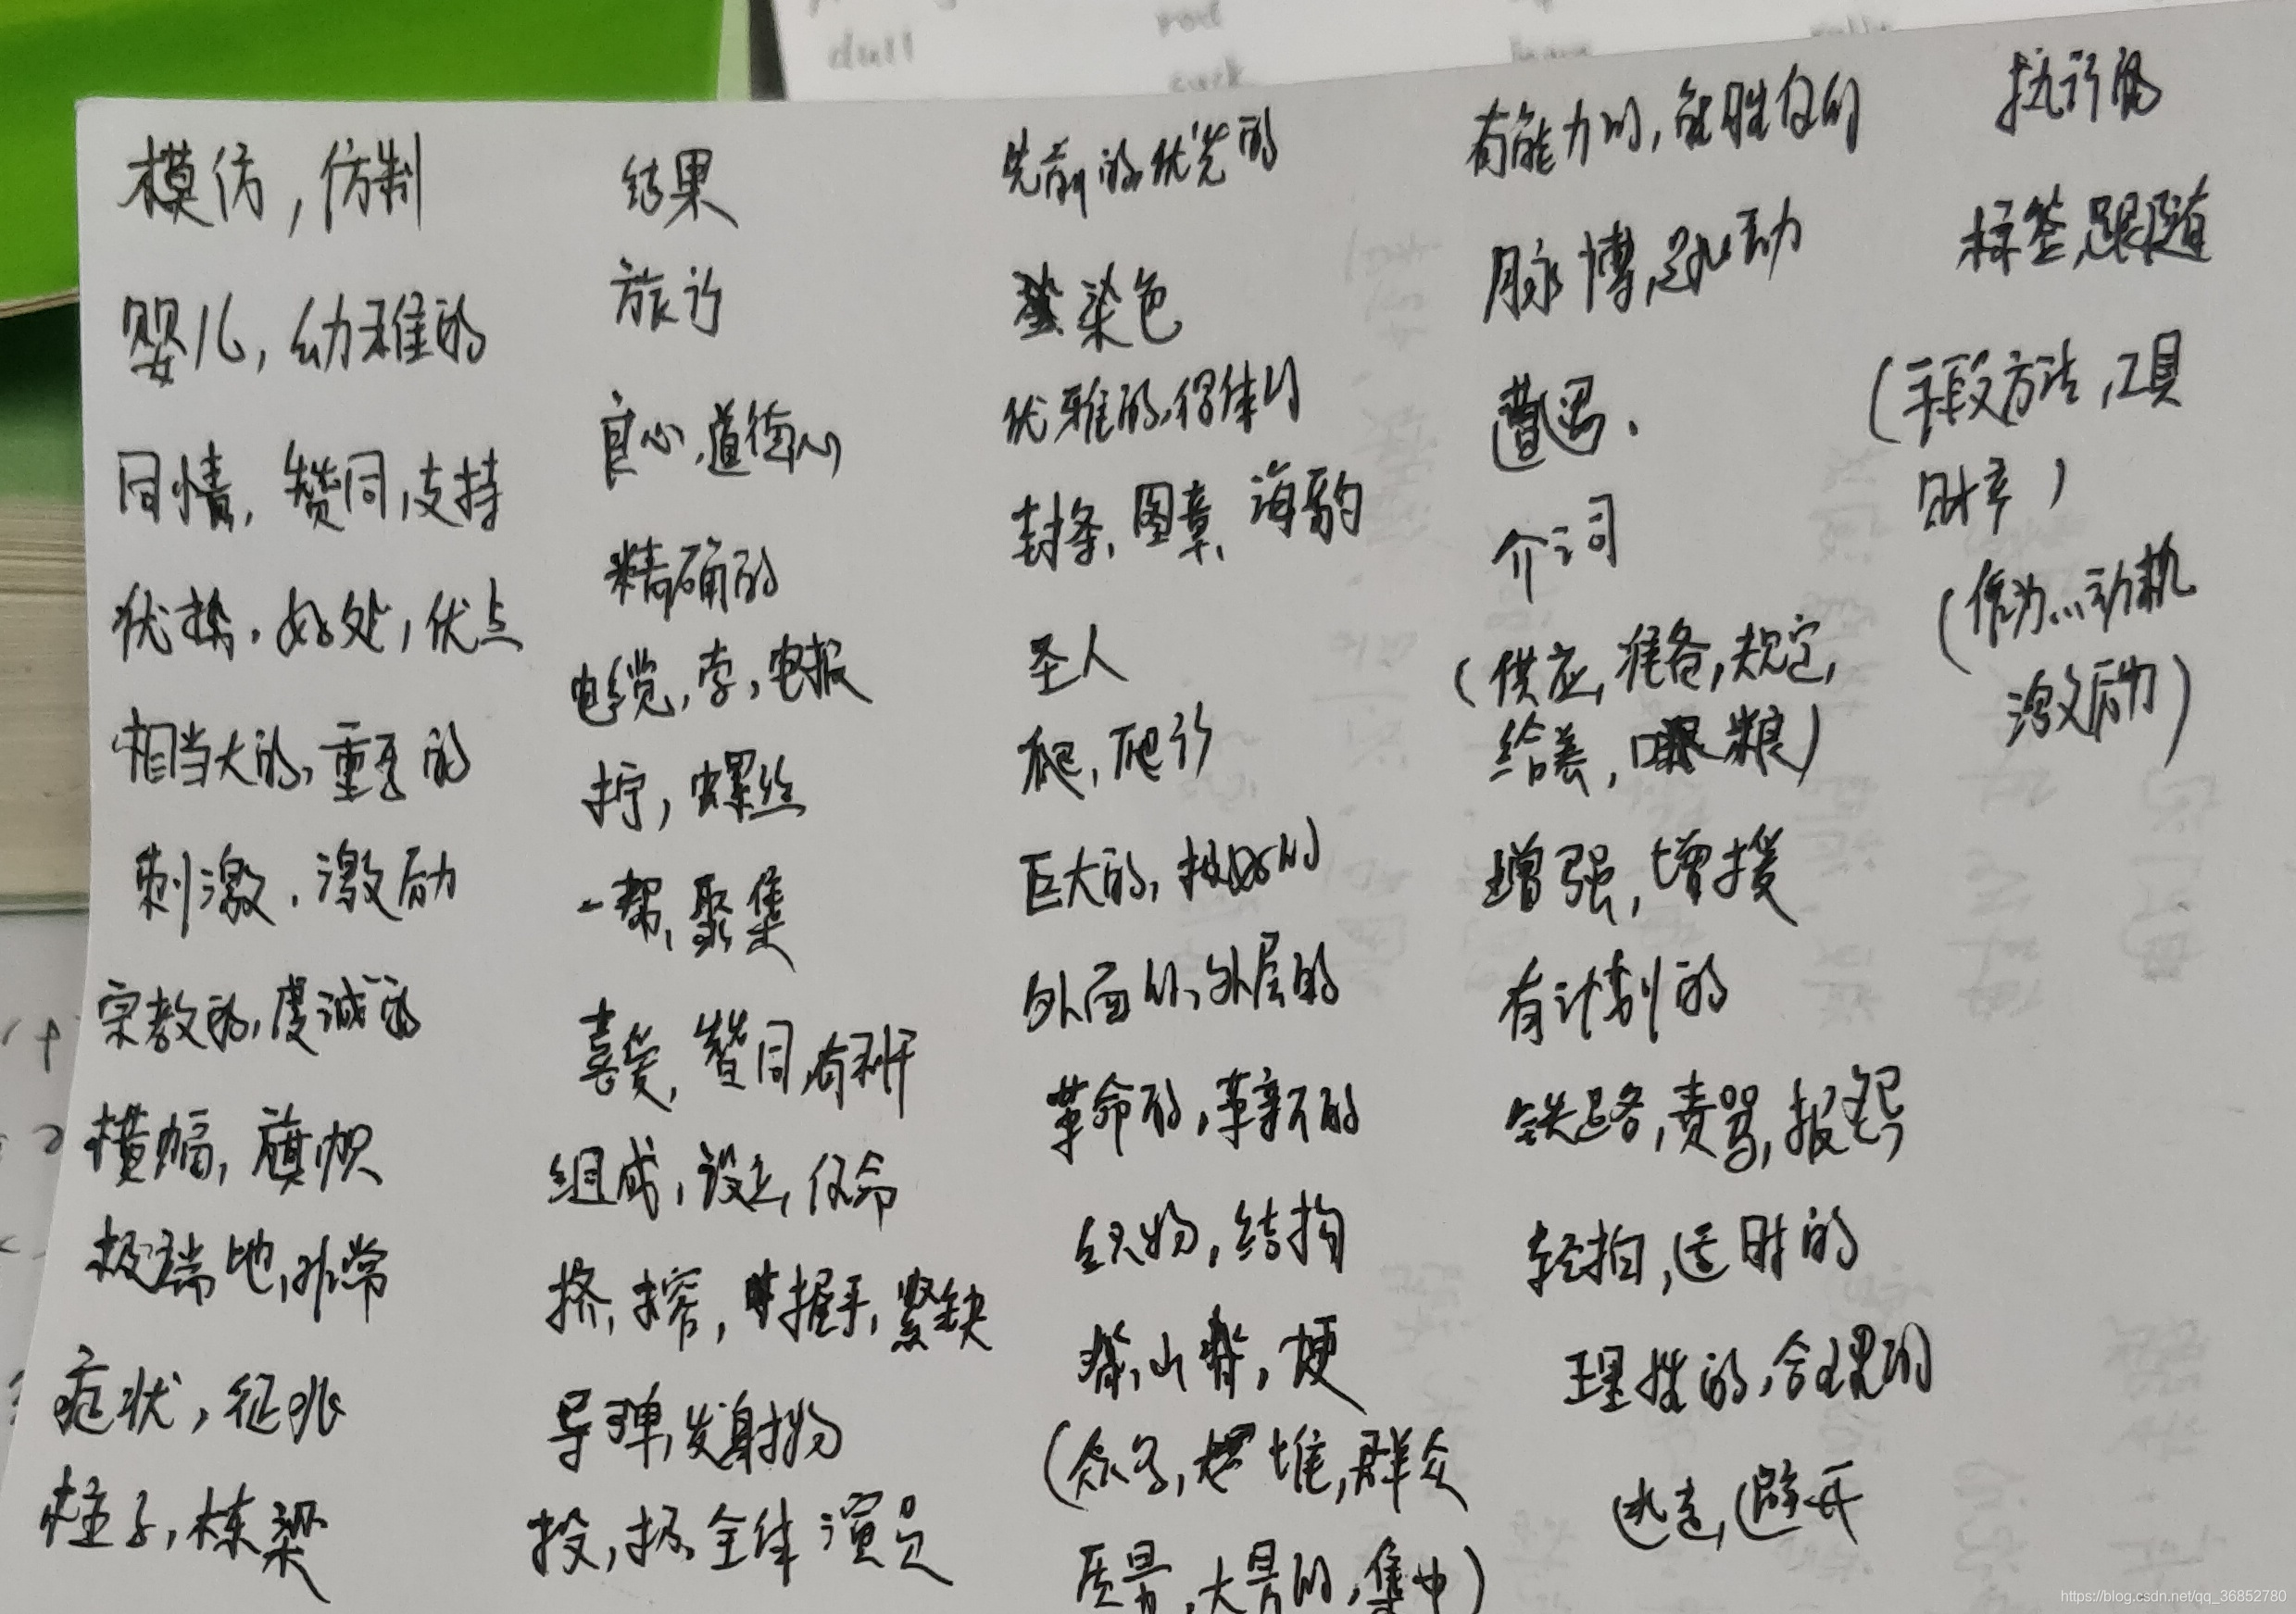 模仿，仿制
婴儿，幼稚的
同情，赞同，支持
优势，好处，优点
相当大的，重要的
刺激，激励
宗教的，虔诚的
横幅，旗帜
极端地，非常
症状，征兆
柱子，栋梁
结果
旅行
良心，道德心
精确的
电缆，索，电报
拧，螺丝
一帮，聚集
喜爱，赞同，有利于
组成，设立，任命
挤，榨，握手，紧缺
导弹，发射物
投，扔，全体演员
先前的优先的
染色
优雅的，得体的
封条，图章，海豹
圣人
爬，爬行
巨大的，极好的
外面的，外层的
革命的，革新的
织物，结构
脊，山脊，埂
（众多，堆，群众
质量，大量的，集中）
有能力的，能胜任的
脉搏，跳动
遭遇．
介词
（供应，准备，规定，
给养，口粮）
增强，增援
有计划的
铁路，责骂，报怨
轻拍，适时的
理性的，合理的
逃走，避开
执行的
标签，跟随
（手段方法，工具
财产）
（作为…动机
激励）
https://blog.csdn.net/qq_36852780